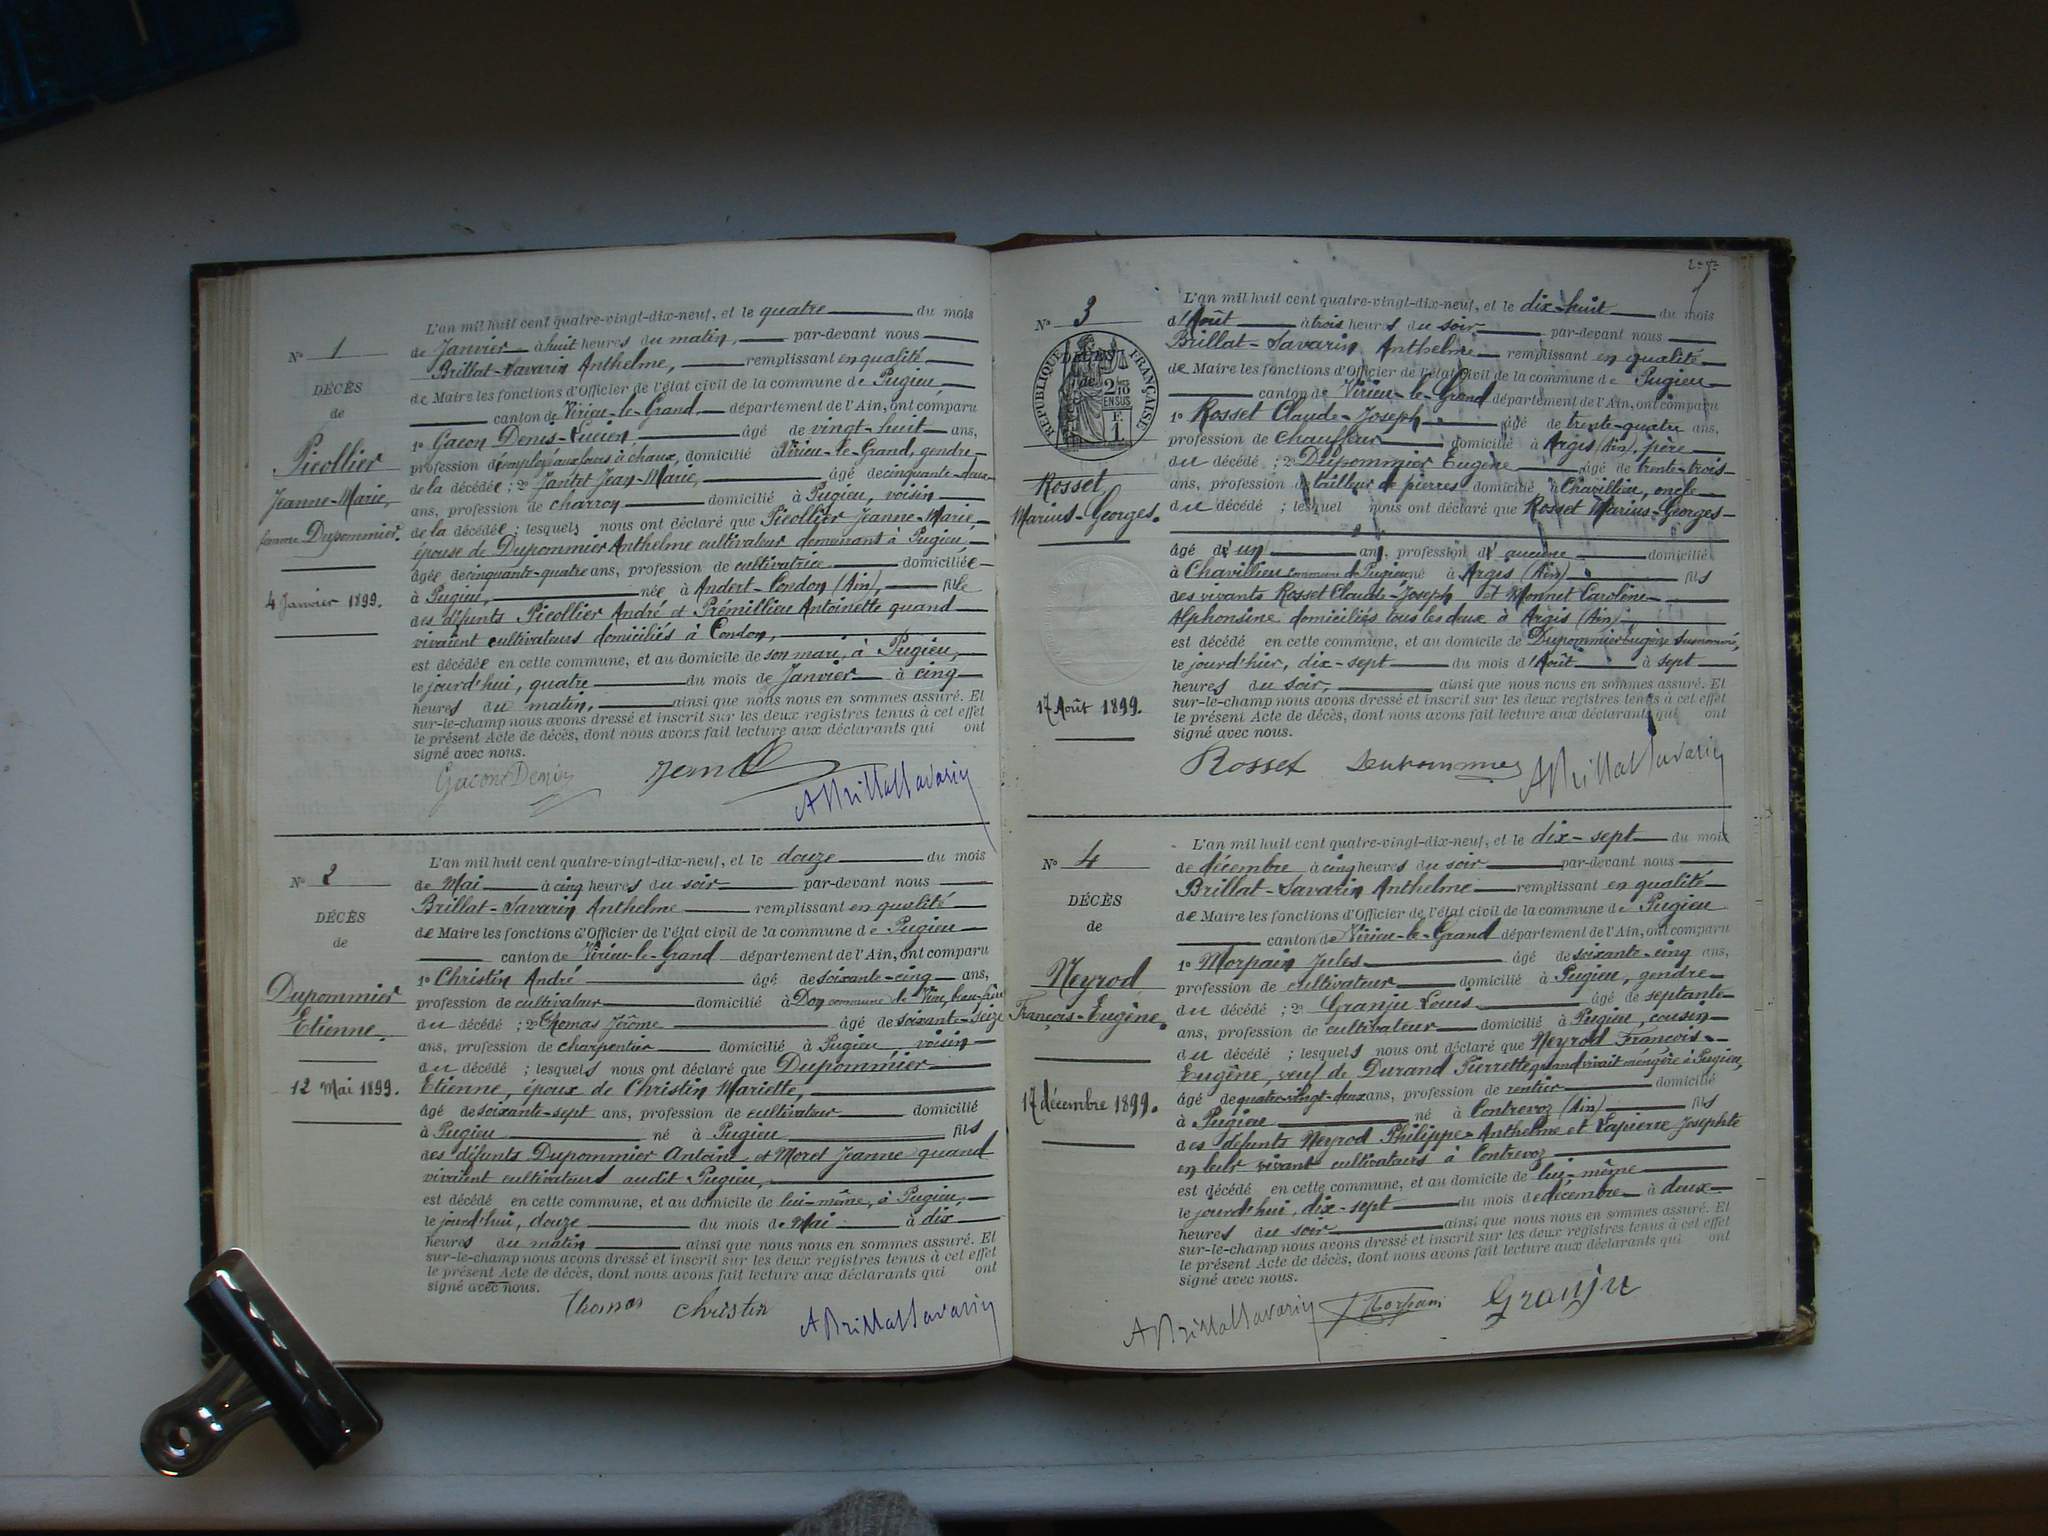 N° 1
DÉCÈS
de
Picollier
Jeanne-Marie,
femme Dupommier.
4 Janvier 1899.
L'an mil huit cent quatre-vingt-dix-neuf, et le quatre du mois
de Janvier à huit heures du matin, par-devant nous
Brillat-Savarin Anthelme, remplissant en qualité
de Maire les fonctions d'Officier de l'état civil de la commune de Pugieu
canton de Virieu-le-Grand, département de l'Ain, ont comparu
1° Gacon Denis-Lucien âgé de vingt-huit ans,
profession d'employé aux fours à chaux, domicilié à Virieu-le-Grand, gendre
de la décédée ; 2° Jantet Jean-Marie, âgé de cinquante-deux
ans, profession de charron domicilié à Pugieu, voisin
de la décédée ; lesquels nous ont déclaré que Picollier Jeanne-Marie,
épouse de Dupommier Anthelme cultivateur demeurant à Pugieu
âgée de cinquante-quatre ans, profession de cultivatrice domiciliée
à Pugieu, née à Andert-Condon (Ain), fille
des défunts Picollier André et Prémillieu Antoinette quand
vivaient cultivateurs domiciliés à Condon,
est décédée en cette commune, et au domicile de son mari, à Pugieu,
le jourd'hui, quatre du mois de Janvier à cinq
heures du matin, ainsi que nous nous en sommes assuré. Et
sur-le-champ nous avons dressé et inscrit sur les deux registres tenus à cet effet
le présent Acte de décès, dont nous avons fait lecture aux déclarants qui ont
signé avec nous.
Gacon Denis
A Brillat Savarin
N° 2
DÉCÈS
de
Dupommier
Etienne.
12 Mai 1899.
L'an mil huit cent quatre-vingt-dix-neuf, et le douze du mois
de Mai à cinq heures du soir par-devant nous
Brillat-Savarin Anthelme remplissant en qualité
de Maire les fonctions d'Officier de l'état civil de la commune de Pugieu
canton de Virieu-le-Grand département de l'Ain, ont comparu
1° Christin André âgé de soixante-cinq ans,
profession de cultivateur domicilié à Don commune de Vieu, beau-frère
du décédé ; 2° Thomas Jérôme âgé de soixante-seize
ans, profession de charpentier domicilié à Pugieu, voisin
du décédé ; lesquels nous ont déclaré que Dupommier
Etienne, époux de Christin Mariette,
âgé de soixante-sept ans, profession de cultivateur domicilié
à Pugieu né à Pugieu fils
des défunts Dupommier Antoine et Moret Jeanne quand
vivaient cultivateurs audit Pugieu,
est décédé en cette commune, et au domicile de lui-même, à Pugieu,
le jourd'hui, douze du mois de Mai à dix
heures du matin ainsi que nous nous en sommes assuré. Et
sur-le-champ nous avons dressé et inscrit sur les deux registres tenus à cet effet
le présent Acte de décès, dont nous avons fait lecture aux déclarants qui ont
signé avec nous.
Thomas Christin A Brillat Savarin
N° 3
RÉPUBLIQUE FRANÇAISE
DÉCÈS
de
Rosset
Marius-Georges.
17 Août 1899.
L'an mil huit cent quatre-vingt-dix-neuf, et le dix-huit du mois
d'Août à trois heures du soir par-devant nous
Brillat-Savarin Anthelme remplissant en qualité
de Maire les fonctions d'Officier de l'état civil de la commune de Pugieu
canton de Virieu-le-Grand département de l'Ain, ont comparu
1° Rosset Claude-Joseph âgé de trente-quatre ans,
profession de chauffeur domicilié à Argis (Ain), père
du décédé ; 2° Dupommier Eugène âgé de trente-trois
ans, profession de tailleur de pierres domicilié à Chavillieu, oncle
du décédé ; lesquel nous ont déclaré que Rosset Marius-Georges
âgé d'un an, profession d'aucune domicilié
à Chavillieu commune de Pugieu né à Argis (Ain) fils
des vivants Rosset Claude-Joseph et Monnet Caroline-
Alphonsine domiciliés tous les deux à Argis (Ain)
est décédé en cette commune, et au domicile de Dupommier Eugène susnommé,
le jour d'hier, dix-sept du mois d'Août à sept
heures du soir, ainsi que nous nous en sommes assuré. Et
sur-le-champ nous avons dressé et inscrit sur les deux registres tenus à cet effet
le présent Acte de décès, dont nous avons fait lecture aux déclarants qui ont
signé avec nous.
Rosset Dupommier A Brillat Savarin
N° 4
DÉCÈS
de
Neyrod
François-Eugène.
17 décembre 1899.
L'an mil huit cent quatre-vingt-dix-neuf, et le dix-sept du mois
de décembre à cinq heures du soir par-devant nous
Brillat-Savarin Anthelme remplissant en qualité
de Maire les fonctions d'Officier de l'état civil de la commune de Pugieu
canton de Virieu-le-Grand département de l'Ain, ont comparu
1° Morpain Jules âgé de soixante-cinq ans,
profession de cultivateur domicilié à Pugieu, gendre
du décédé ; 2° Granju Louis âgé de septante
ans, profession de cultivateur domicilié à Pugieu, cousin
du décédé ; lesquels nous ont déclaré que Neyrod François-
Eugène, veuf de Durand Pierrette quand vivait ménagère à Pugieu,
âgé de quatre-vingt-deux ans, profession de rentier domicilié
à Pugieu né à Contrevoz (Ain) fils
des défunts Neyrod Philippe-Anthelme et Lapierre Josephte
en leur vivant cultivateurs à Contrevoz
est décédé en cette commune, et au domicile de lui-même
le jourd'hui, dix-sept du mois de décembre à deux
heures du soir ainsi que nous nous en sommes assuré. Et
sur-le-champ nous avons dressé et inscrit sur les deux registres tenus à cet effet
le présent Acte de décès, dont nous avons fait lecture aux déclarants qui ont
signé avec nous.
A Brillat Savarin J Morpain Granju